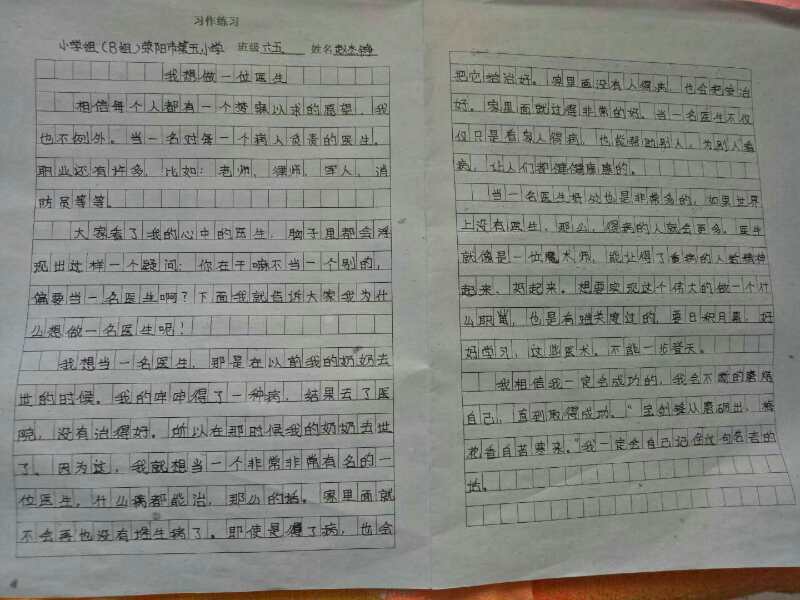 习作练习
小学组（B组）荥阳市第五小学 班级六五 姓名
我想做一位医生
相信每个人都有一个梦寐以求的愿望，我
也不例外。当一名对每一个病人负责的医生。
职业还有许多，比如：老师、律师、军人、消
防员等等。
大家看了我的心中的医生，脑子里都会浮
现出这样一个疑问：你在干嘛不当一个别的，
偏要当一名医生啊？下面我就告诉大家我为什
么想做一名医生呢！
我想当一名医生，那是在以前我的奶奶去
世的时候。我的奶奶得了一种病，结果去了医
院，没有治得好。所以在那时候我的奶奶去世
了。因为这，我就想当一个非常非常有名的一
位医生，什么病都能治，那么的话。家里面就
不会再也没有发生病了。即使是得了病，也会
把它给治好。家里面没有人得病，也会把它治
好。家里面就过得非常的好。当一名医生不仅
仅只是看家人得病，也能帮助别人，为别人看
病，让人们都健健康康的。
当一名医生好处也是非常多的，如果世界
上没有医生，那么，得病的人就会更多。医生
就像是一位魔术师，能让得了重病的人都精神
起来、好起来。想要实现这个伟大的做一个什
么职业，也是有难关度过的。要日积月累，好
好学习，这些医术。不能一步登天。
我相信我一定会成功的，我会不断的磨炼
自己，直到取得成功。“宝剑锋从磨砺出，梅
花香自苦寒来。”我一定会自己记住这句名言的
话。